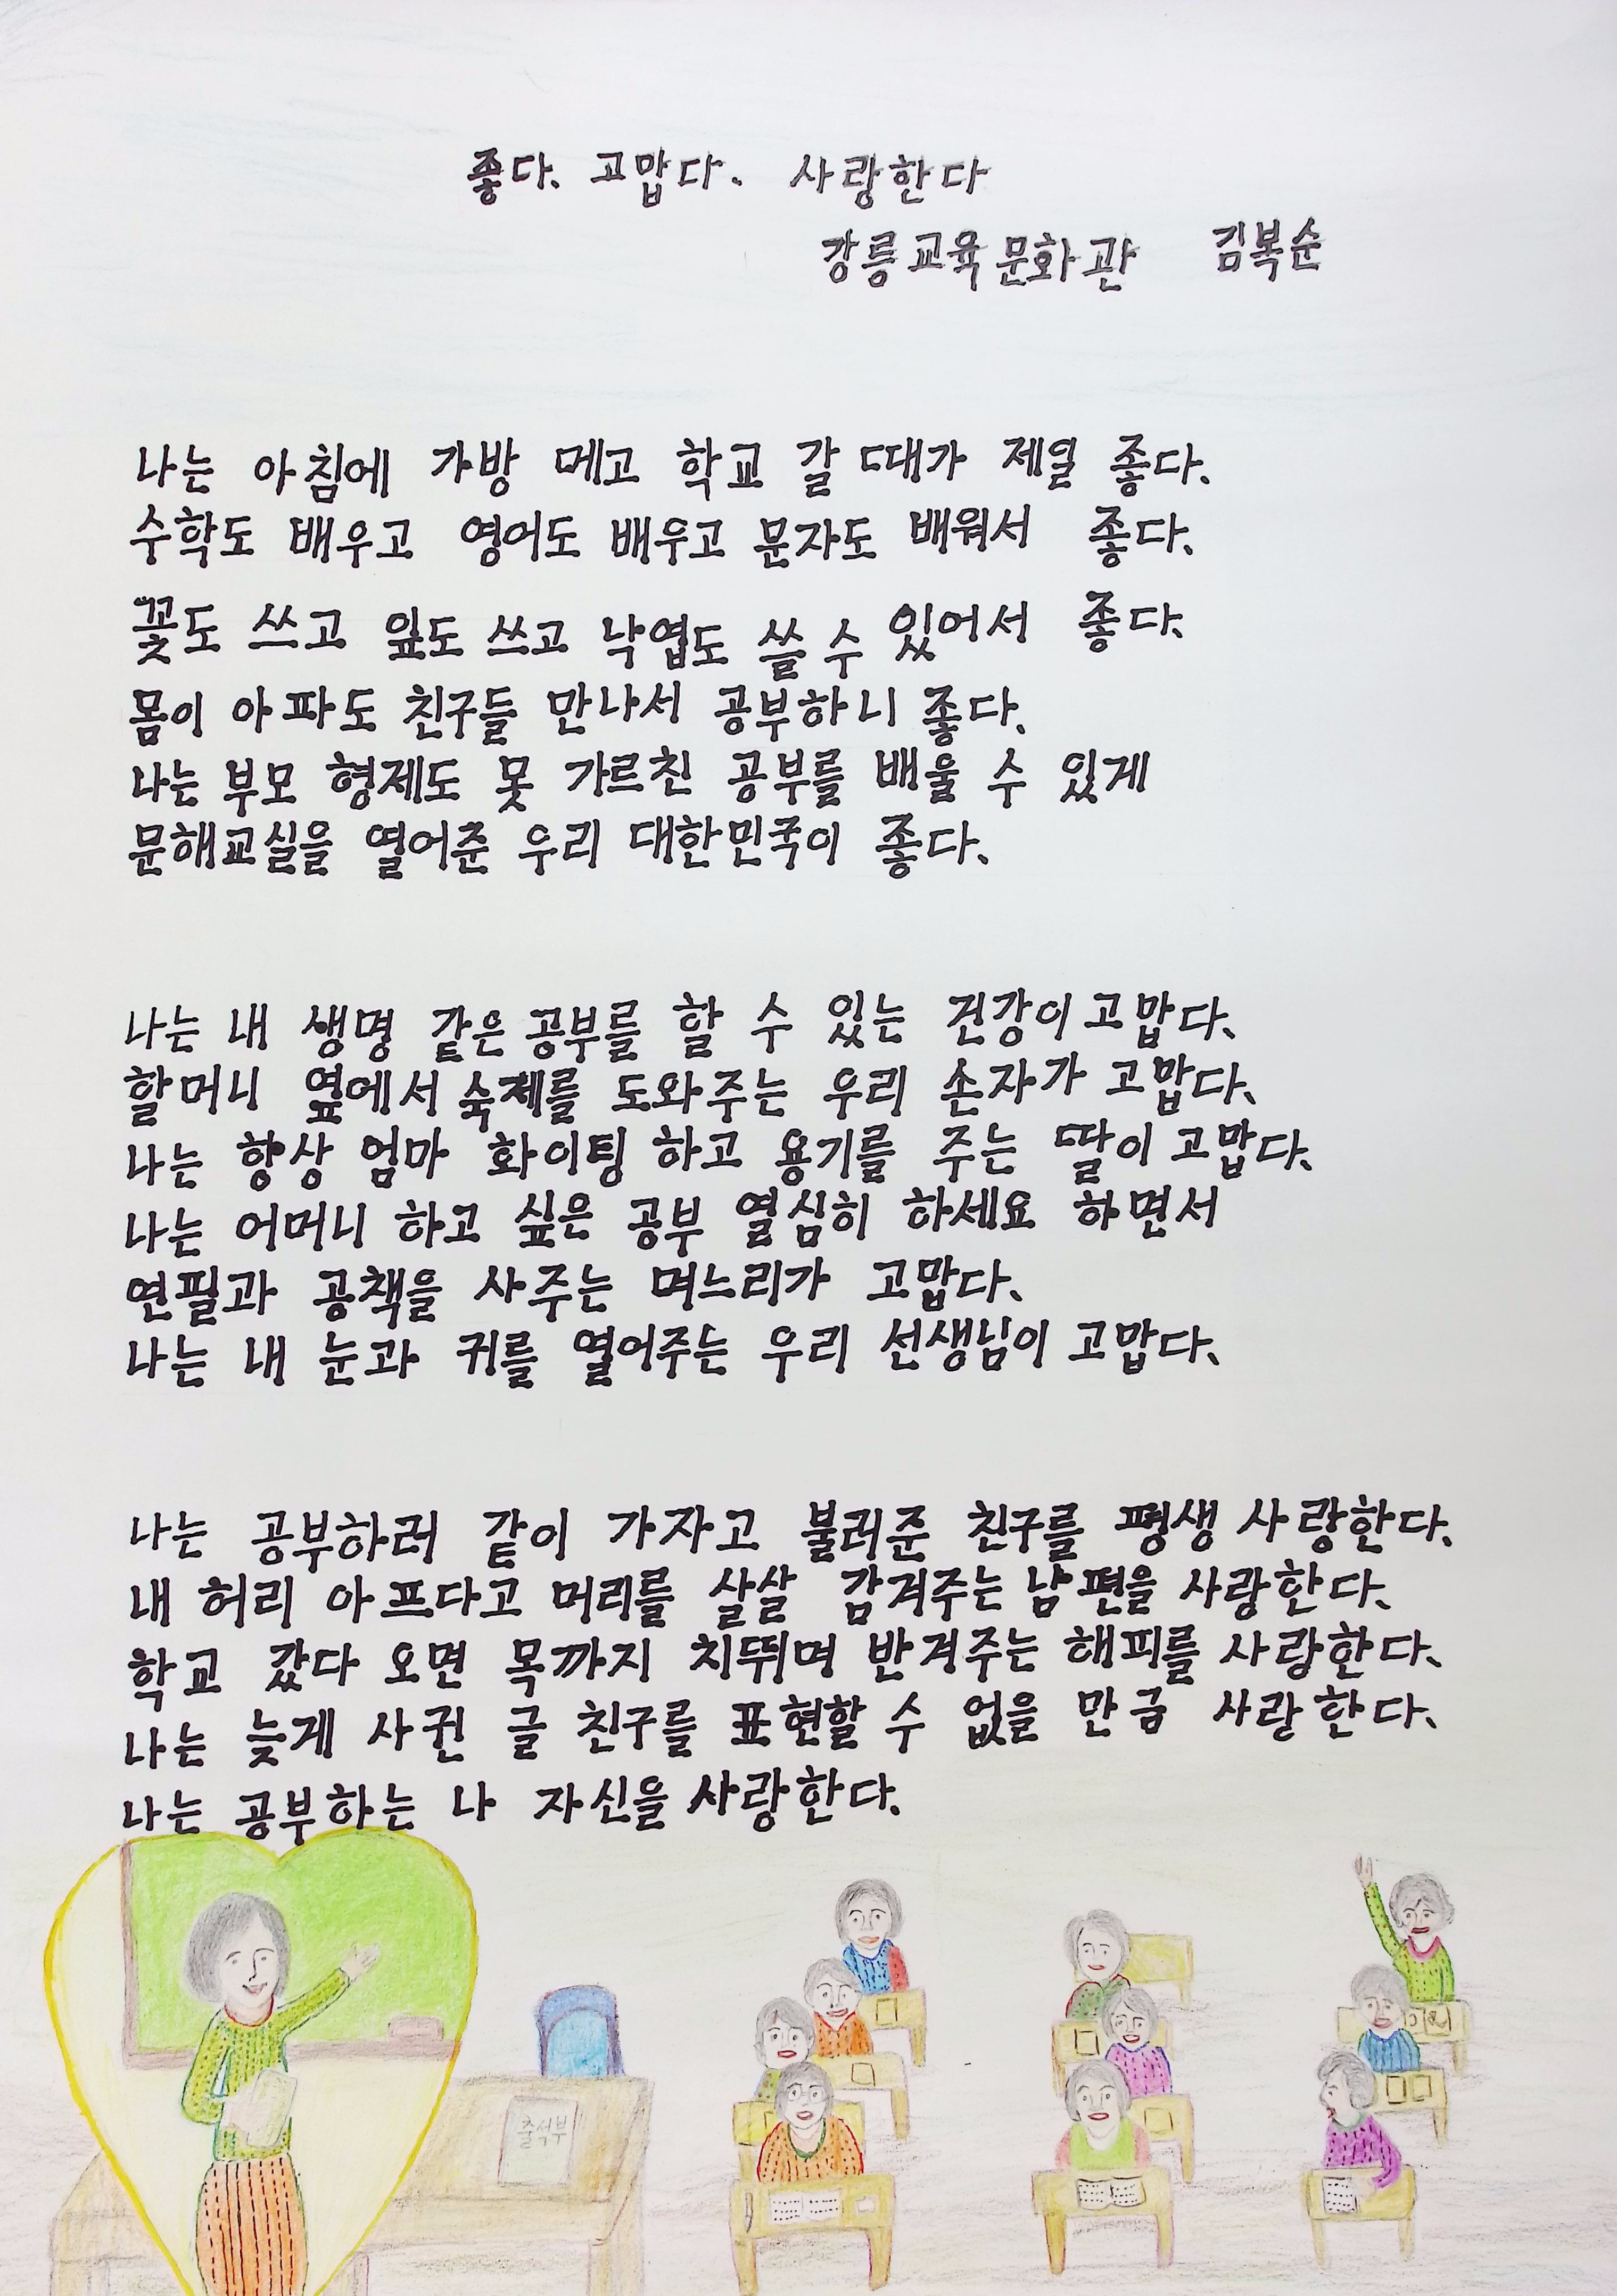 좋다. 고맙다. 사랑한다
강릉교육문화관 김복순
나는 아침에 가방 메고 학교 갈 때가 제일 좋다.
수학도 배우고 영어도 배우고 문자도 배워서 좋다.
꽃도 쓰고 잎도 쓰고 낙엽도 쓸 수 있어서 좋다.
몸이 아파도 친구들 만나서 공부하니 좋다.
나는 부모 형제도 못 가르친 공부를 배울 수 있게
문해교실을 열어준 우리 대한민국이 좋다.
나는 내 생명 같은 공부를 할 수 있는 건강이 고맙다.
할머니 옆에서 숙제를 도와주는 우리 손자가 고맙다.
나는 항상 엄마 화이팅 하고 용기를 주는 딸이 고맙다.
나는 어머니 하고 싶은 공부 열심히 하세요 하면서
연필과 공책을 사주는 며느리가 고맙다.
나는 내 눈과 귀를 열어주는 우리 선생님이 고맙다.
나는 공부하러 같이 가자고 불러준 친구를 평생 사랑한다.
내 허리 아프다고 머리를 살살 감겨주는 남편을 사랑한다.
학교 갔다 오면 목까지 치뛰며 반겨주는 해피를 사랑한다.
나는 늦게 사귄 글 친구를 표현할 수 없을 만큼 사랑한다.
나는 공부하는 나 자신을 사랑한다.
출석부